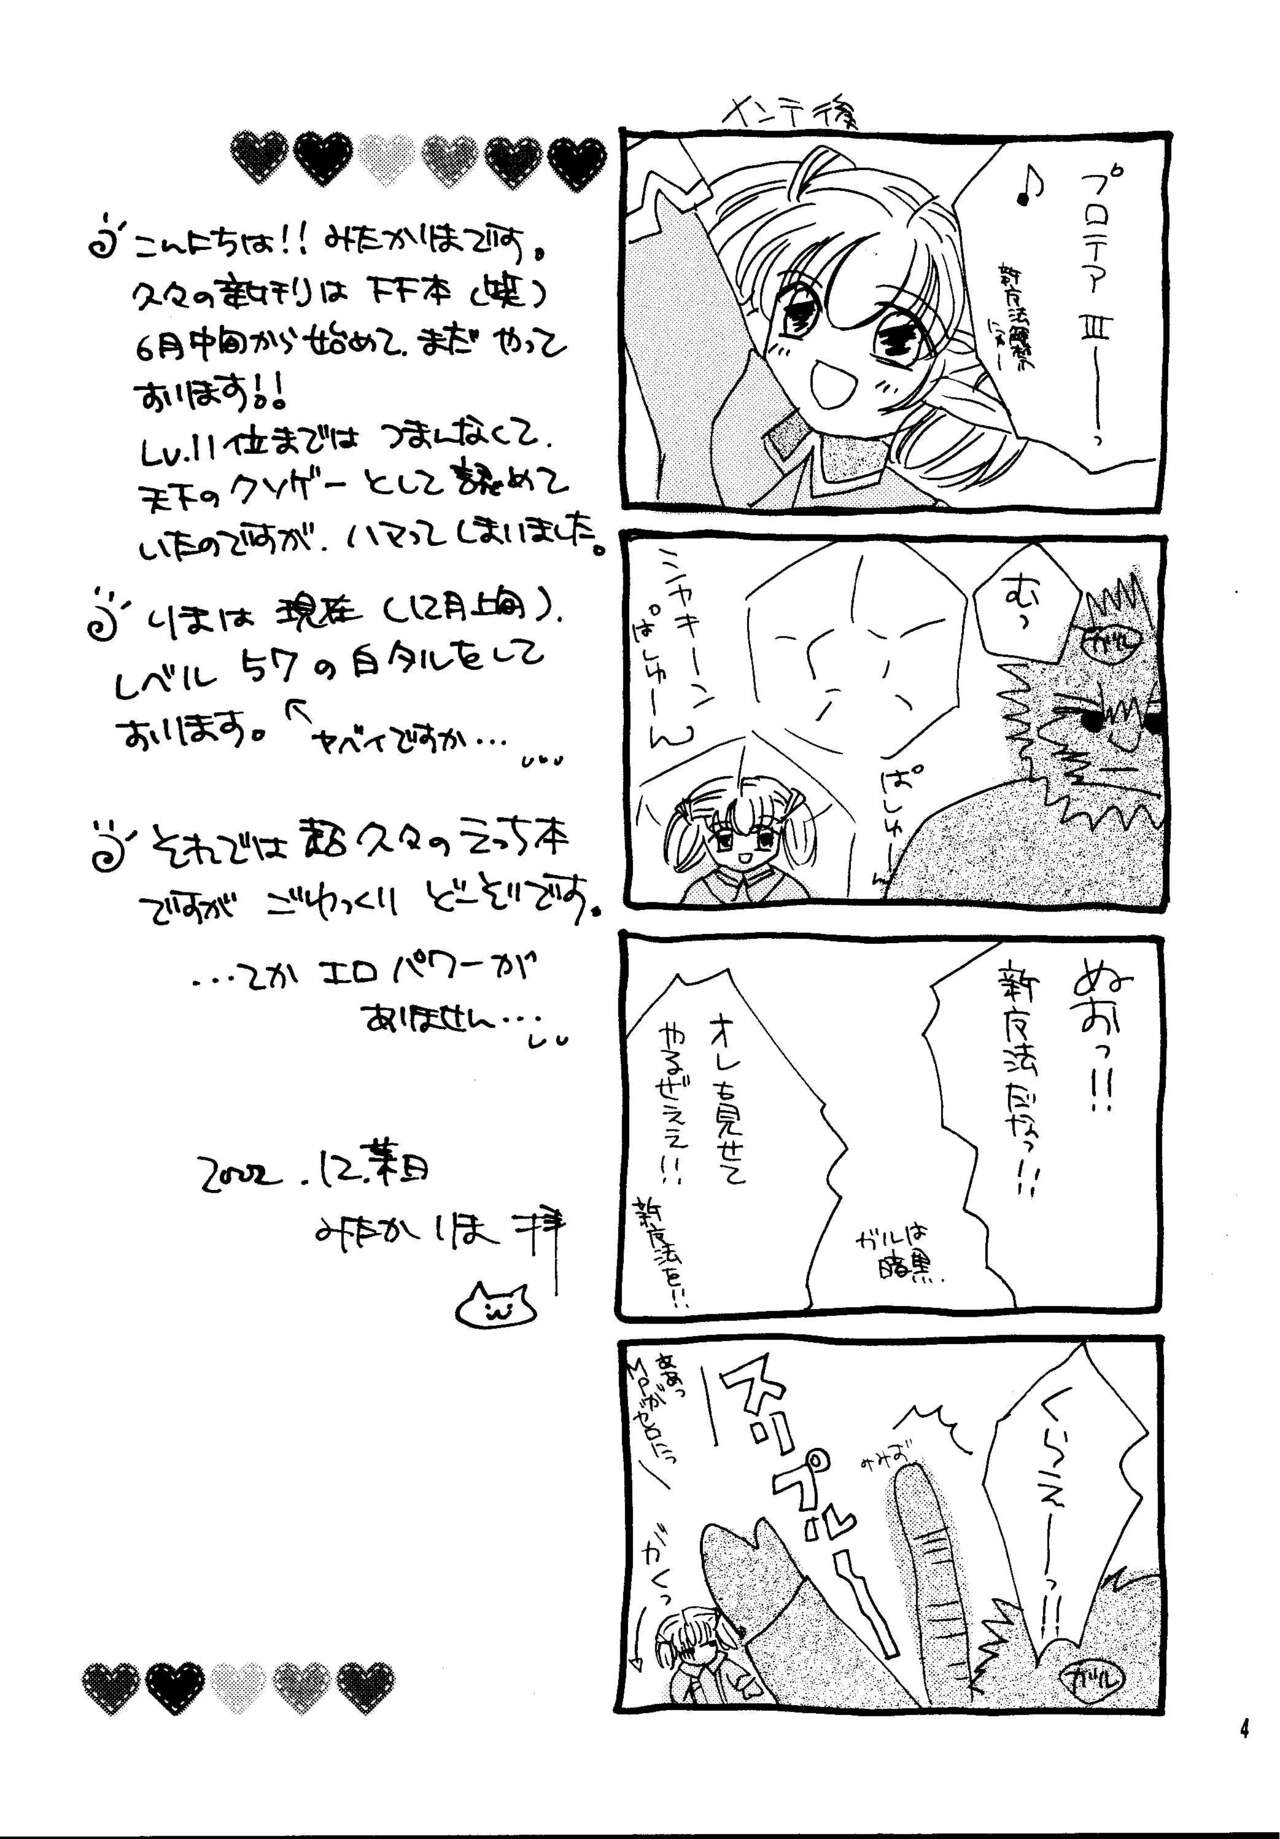 メンテ後
プロテア Ⅲーーっ
♪
新女法解禁
にっきー
むっ
ガル
シャキーン
ぱしゅーん
ぱしゅーん
ぬおっ!!
新女法だなっ!!
オレも見せて
やるぜええ!!
新女法を!!
ガルは
暗黒.
くらえーーっ!!
ガル
みみお
スリプルー
ああっ
MPがゼロにっ
がくっ
こんにちは!! みたかりほです。
久々の新刊は FF本(笑)
6月中旬から 始めて、まだ やって
おります!!
Lv.11位までは つまんなくて、
天下の クソゲー として 認めて
いたのですが、ハマって しまいました。
りまは 現在 (12月上旬)、
レベル 57の 白タルをして
おります。
ヤベイですか…
それでは 超久々の えっち本
ですが ごゆっくり どーぞです。
…てか エロパワーが
ありません…
2002.12.葉日
みたか りほ 拝
4